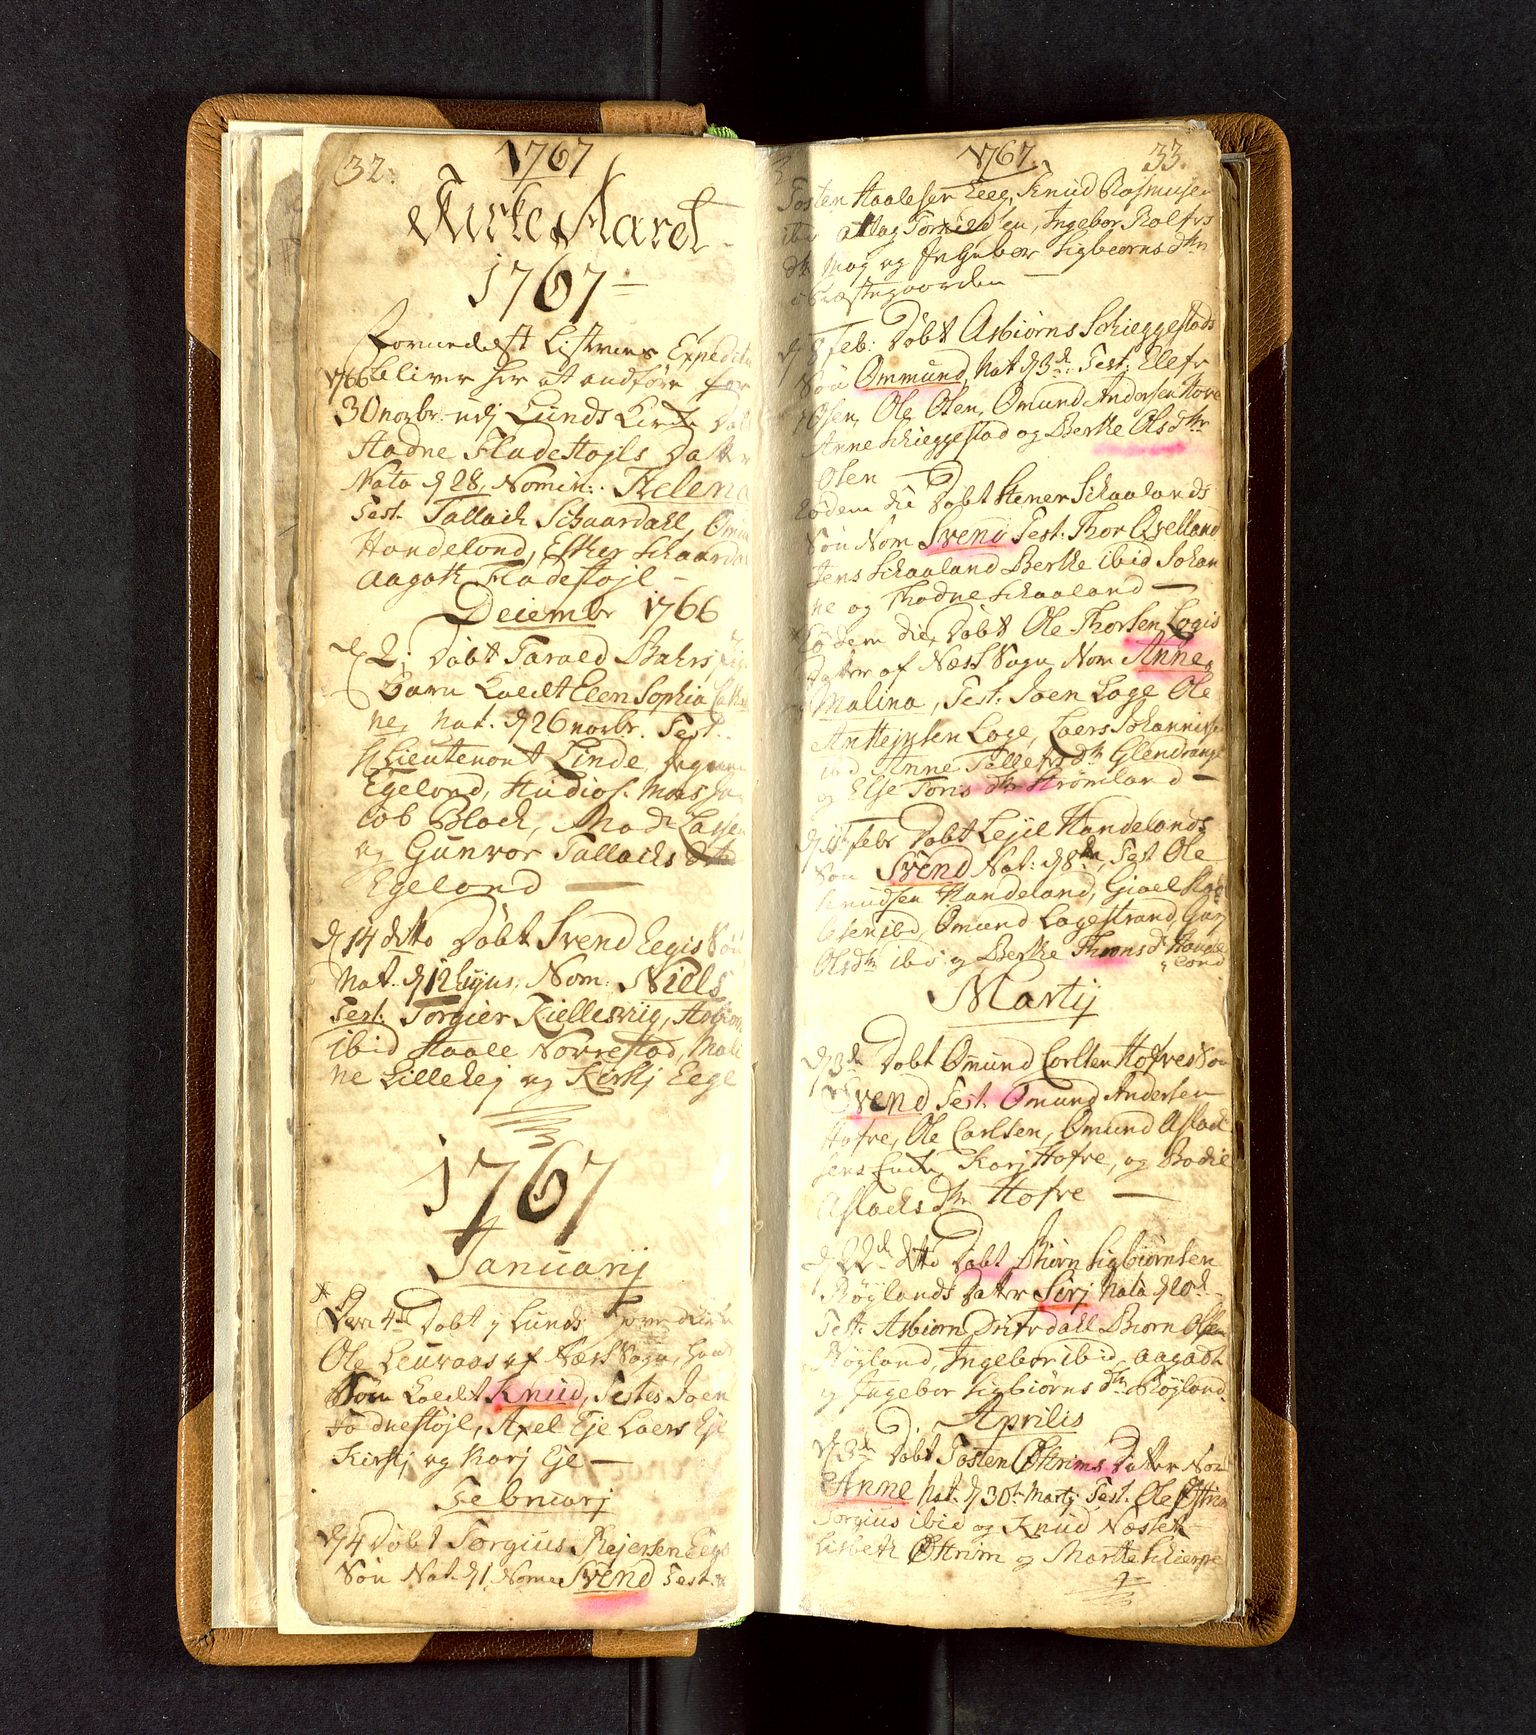 32.
1767
Kirke Aaret
1767
Formedelst Listernes Expedit
1766 bliver her at andføre for
30 novbr: udj Lunds Kirke Døbt
Stadne Fladestøjls Datter
Nata d 28, Nomin: Helena
Test. Tallach Schaardall, Omun
Handeland, Esther Schaarda
Aagoth Fladestøjl
Decembr 1766
d 2, Døbt Tarald Bahrs
Barn Kaldt Elen Sophia Cath
ne, Nat. d 26 novbr. Test.
Hr Lieutenant Linde,
Egeland, Studios. Mons Ja
cob Bloch, Mad: Lassen
og Gunvor Tallachs dtr
Egeland
d 14 ditto Døbt Svend Eegis Søn
Nat. d 12 hujus, Nom. Niels
Test. Torgier Kiellesviig, Asbiorn
ibid Staale Norrestad, Mali
ne Lillehej og Kirstj Eege
1767
Januarij
Den 4de Døbt j Lunds
Ole Leuraas af Næss Sogn,
Søn Kaldt Knud, Testes Joen
Stadnestøjl, Axel Eje Laers Eje
Kirstj og Karj Eje
Februarj
d 4 Døbt Torgius Rejersen Eege
Søn Nat. d 1, Nomen Svend Test.
1767.
33.
Tosten Staalesen Eeg, Knud Rasmusen
ibid Attag Torkield en, Ingebor Rolfs
dtr Mog og Ingebor Sigbiornsdtr
Præstegaarden
d 8 Feb: Døbt Asbiørns Schieggestads
Søn Ommund, Nat d 3de. Test: Elefr
Olsen, Ole Olsen, Omund Andersen Hove
Anne Schieggestad og Berthe Olsdtr
Olsen
Eodem die Døbt Stener Schaalands
Søn Nom Svend Test: Thor Qvelland
Jens Schaaland Berthe ibid Johan
ne og Thodne Schaaland
Eodem die, Døbt Ole Thorsen Logis
Datter af Næss Sogn Nom Anne
Malina, Test: Joen Loge Ole
Anstejnsen Loge, Laers Johannisen
ibid, Anne Tollefsdtr Glendrange
og Else Tonis dtr Strømland
d 15 febr Døbt Lejel Handelands
Søn Svend Nat: d 8de, Test Ole
Knudsen Handeland, Giael Staa
lesen ibid, Omund Lagestrand Gun
Olsdtr ibid og Berthe Thronsdtr Hande
land
Martij
d 3de Døbt Omund Carlsen Hofves Søn
Svend Test. Omund Andersen
Hofve, Ole Carlsen, Omund Aslach
sens Enke, Karj Hofve, og Bodil
Aslachsdtr Hofve
d 22de ditto Døbt Biørn Sigbiørnsen
Røylands Datter Sirj Nata d 20de
Test: Asbiorn Drivdahl Biorn Olsen
Røyland, Ingebor ibid, Aagadt
og Ingebor Sigbiørns dtr Røyland.
Aprilis
d 3de Døbt Tosten Østrims Datter Nom
Anne Nat. d 30te Martj Test. Ole Østrim
Torgius ibid og Knud Næstet
Lisbeth Østrim og Marthe Schierpe